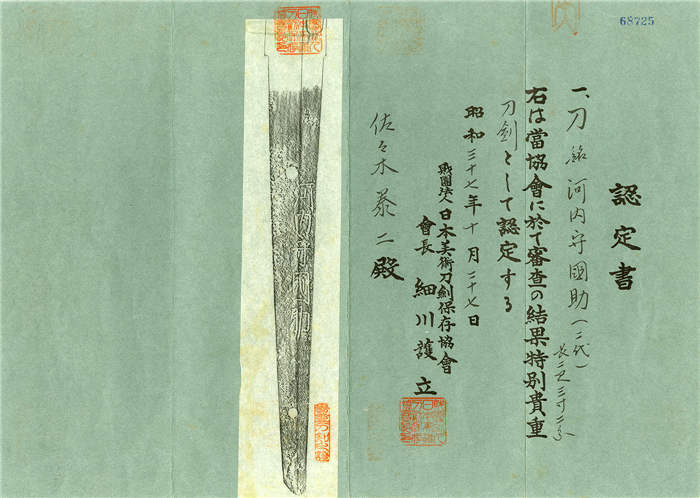 68725
認定書
一、刀 銘 河内守國助(二代)
長二尺三寸二分
右は當協會に於て審査の結果特別貴重
刀劍として認定する
昭和三十七年十月二十七日
財團法人 日本美術刀劍保存協會
會長 細川護立
佐々木 泰二殿
河内守國助